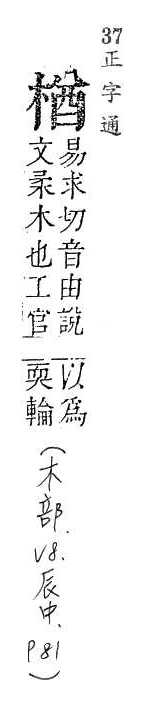 37正字通
楢
易求切音由說
文柔木也工官
以為
耎輪
(木部. V8. 辰中. P81)